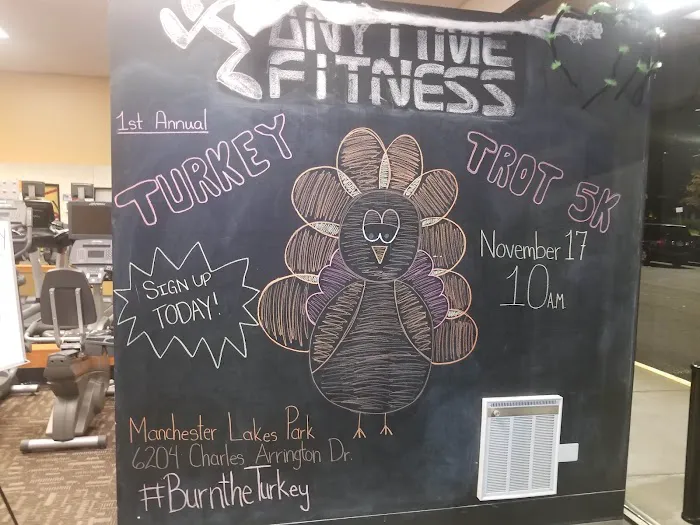 ANYTIME
FITNESS
1st Annual
TURKEY TROT 5K
November 17
10AM
SIGN UP
TODAY!
Manchester Lakes Park
6204 Charles Arrington Dr.
#BurntheTurkey